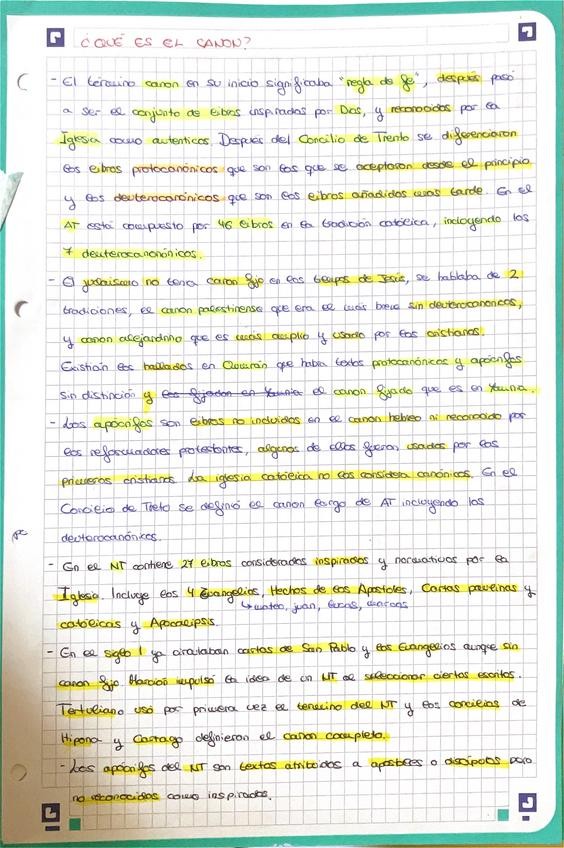 ¿QUÉ ES EL CANON?
- El término canon en su inicio significaba "regla de fe", después pasó
a ser el conjunto de libros inspirados por Dios, y reconocidos por la
Iglesia como autenticos. Después del Concilio de Trento se diferenciaron
los libros protocanónicos que son los que se aceptaron desde el principio
y los deuterocanónicos que son los libros añadidos mas tarde. En el
AT está compuesto por 46 libros en la tradición católica, incluyendo los
7 deuterocanonónicos.
- El judaismo no tenia canon fijo en los tiempos de Jesús, se hablaba de 2
tradiciones, el canon palestinense que era el más breve sin deuterocanonicos,
y canon alejandrino que es más amplio y usado por los cristianos.
Existían los hallados en Qumrán que habia textos protocanónicos y apócrifos
sin distinción y los fijadon en Yamnia el canon fijado que es en Yamnia.
- Los apócrifos son libros no incluidos en el canon hebreo ni reconocido por
los reformadores protestantes, algunos de ellos fueron usados por los
primeros cristianos. La iglesia católica no los considera canónicos. En el
Concilio de Treto se definió el canon largo de AT incluyendo los
deuterocanónicos.
- En el NT contiene 27 libros considerados inspirados y normativos por la
Iglesia. Incluye los 4 Evangelios, Hechos de los Apostoles, Cartas paulinas y
↳ mateo, juan, lucas, marcos
católicas y Apocalipsis.
- En el siglo I ya circulaban cartas de San Pablo y los Evangelios aunque sin
canon fijo. Marcion impulsó la idea de un NT al seleccionar ciertos escritos.
Tertuliano usó por primera vez el termino del NT y los concilios de
Hipona y Cartago definieron el canon completo.
- Los apócrifos del NT son textos atribuidos a apostoles o discípulos pero
no reconocidos como inspirados.